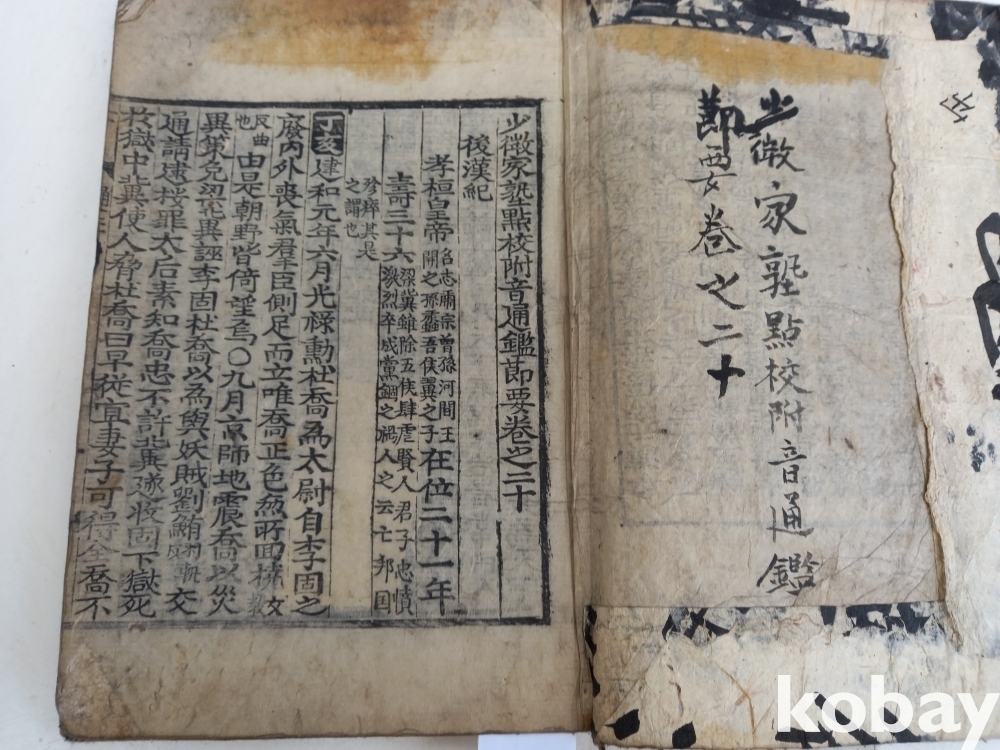 少微家塾點校附音通鑑
節要卷之二十
少微家塾點校附音通鑑節要卷之二十
後漢紀
孝桓皇帝 名志肅宗曾孫河間王開之孫蠡吾侯翼之子 在位二十一年
壽三十六 梁冀雖除五侯肆虐賢人君子忠憤激烈卒成黨錮之禍人之云亡邦國
殄瘁其是之謂也
丁亥建和元年六月光祿勳杜喬爲太尉自李固之
廢內外喪氣羣臣側足而立唯喬正色無所回橈 女敎
反曲也 由是朝野皆倚望焉○九月京師地震喬以災
異策免梁冀誣李固杜喬以爲與妖賊劉鮪 交
通請逮按罪太后素知喬忠不許冀遂收固下獄死
於獄中冀使人脅杜喬曰早從宜妻子可得全喬不
kobay